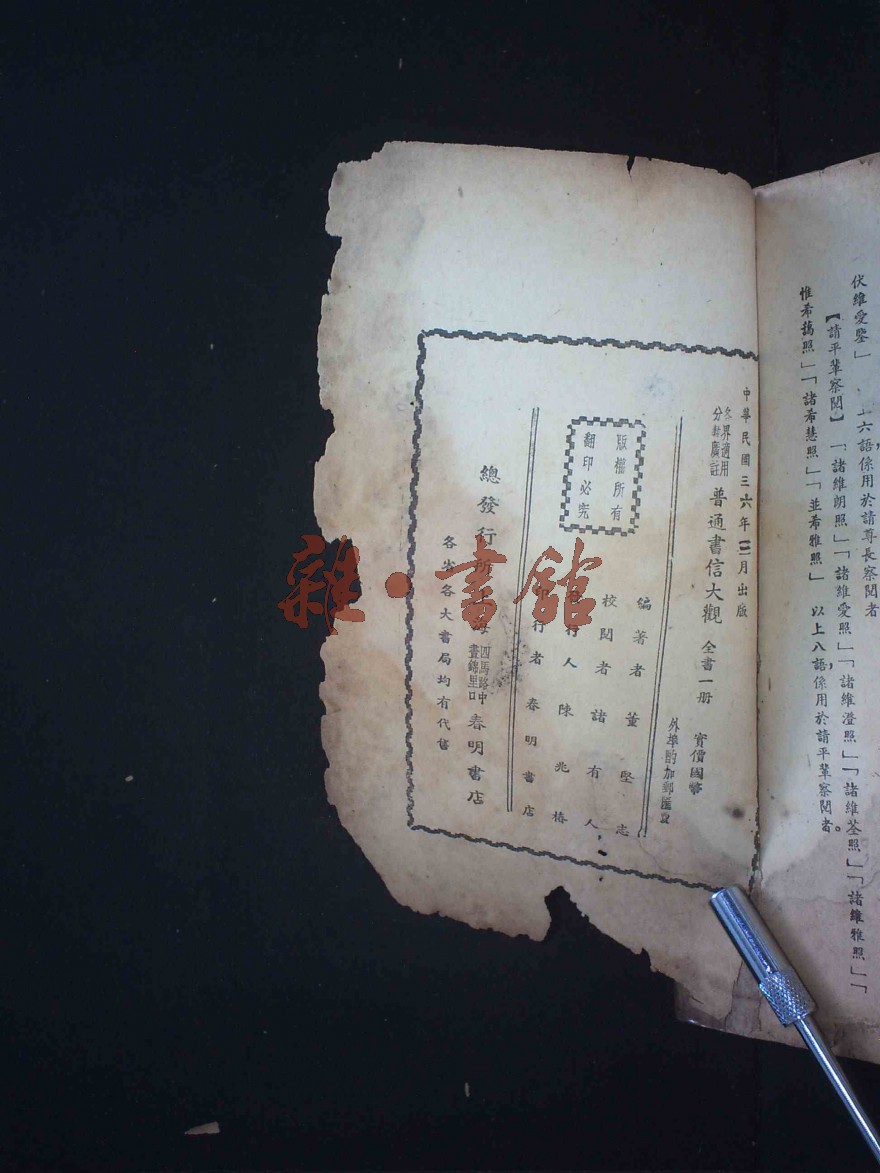 伏維愛鑒」 上六語係用於請尊長察閱者
【請平輩察閱】 「諸維朗照」「諸維愛照」「諸維澄照」「諸維荃照」「諸維雅照」「
惟希藹照」「諸希慧照」「並希雅照」 以上八語,係用於請平輩察閱者。
中華民國三六年三月出版
各界適用
分類廣註
普通書信大觀 全書一册
實價國幣
外埠酌加郵匯費
編著者董堅志
校閱者諸有人
發行人陳兆椿
印行者春明書店
版權所有
翻印必究
總發行所上海四馬路中畫錦里口春明書店
各省各大書局均有代售
雜·書館